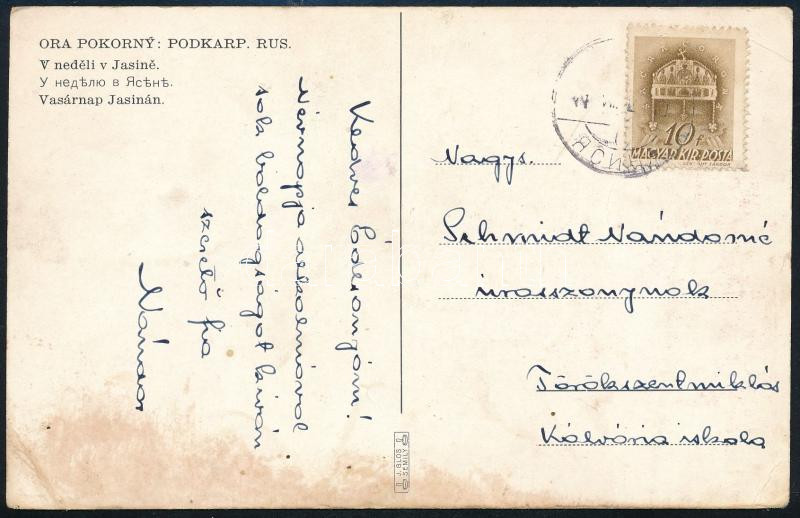 ORA POKORNÝ: PODKARP. RUS.
V neděli v Jasině.
У недѣлю в Ясѣнѣ.
Vasárnap Jasinán.
Kedves Édesanyám!
Névnapja alkalmával
sok boldogságot kíván
szerető fia
Nándor
10 f.
MAGYAR KIR. POSTA
Nagys.
Schmidt Nándorné
úrasszonynak
Törökszentmiklós
Kálvária iskola
J. BLOS
SEMILY